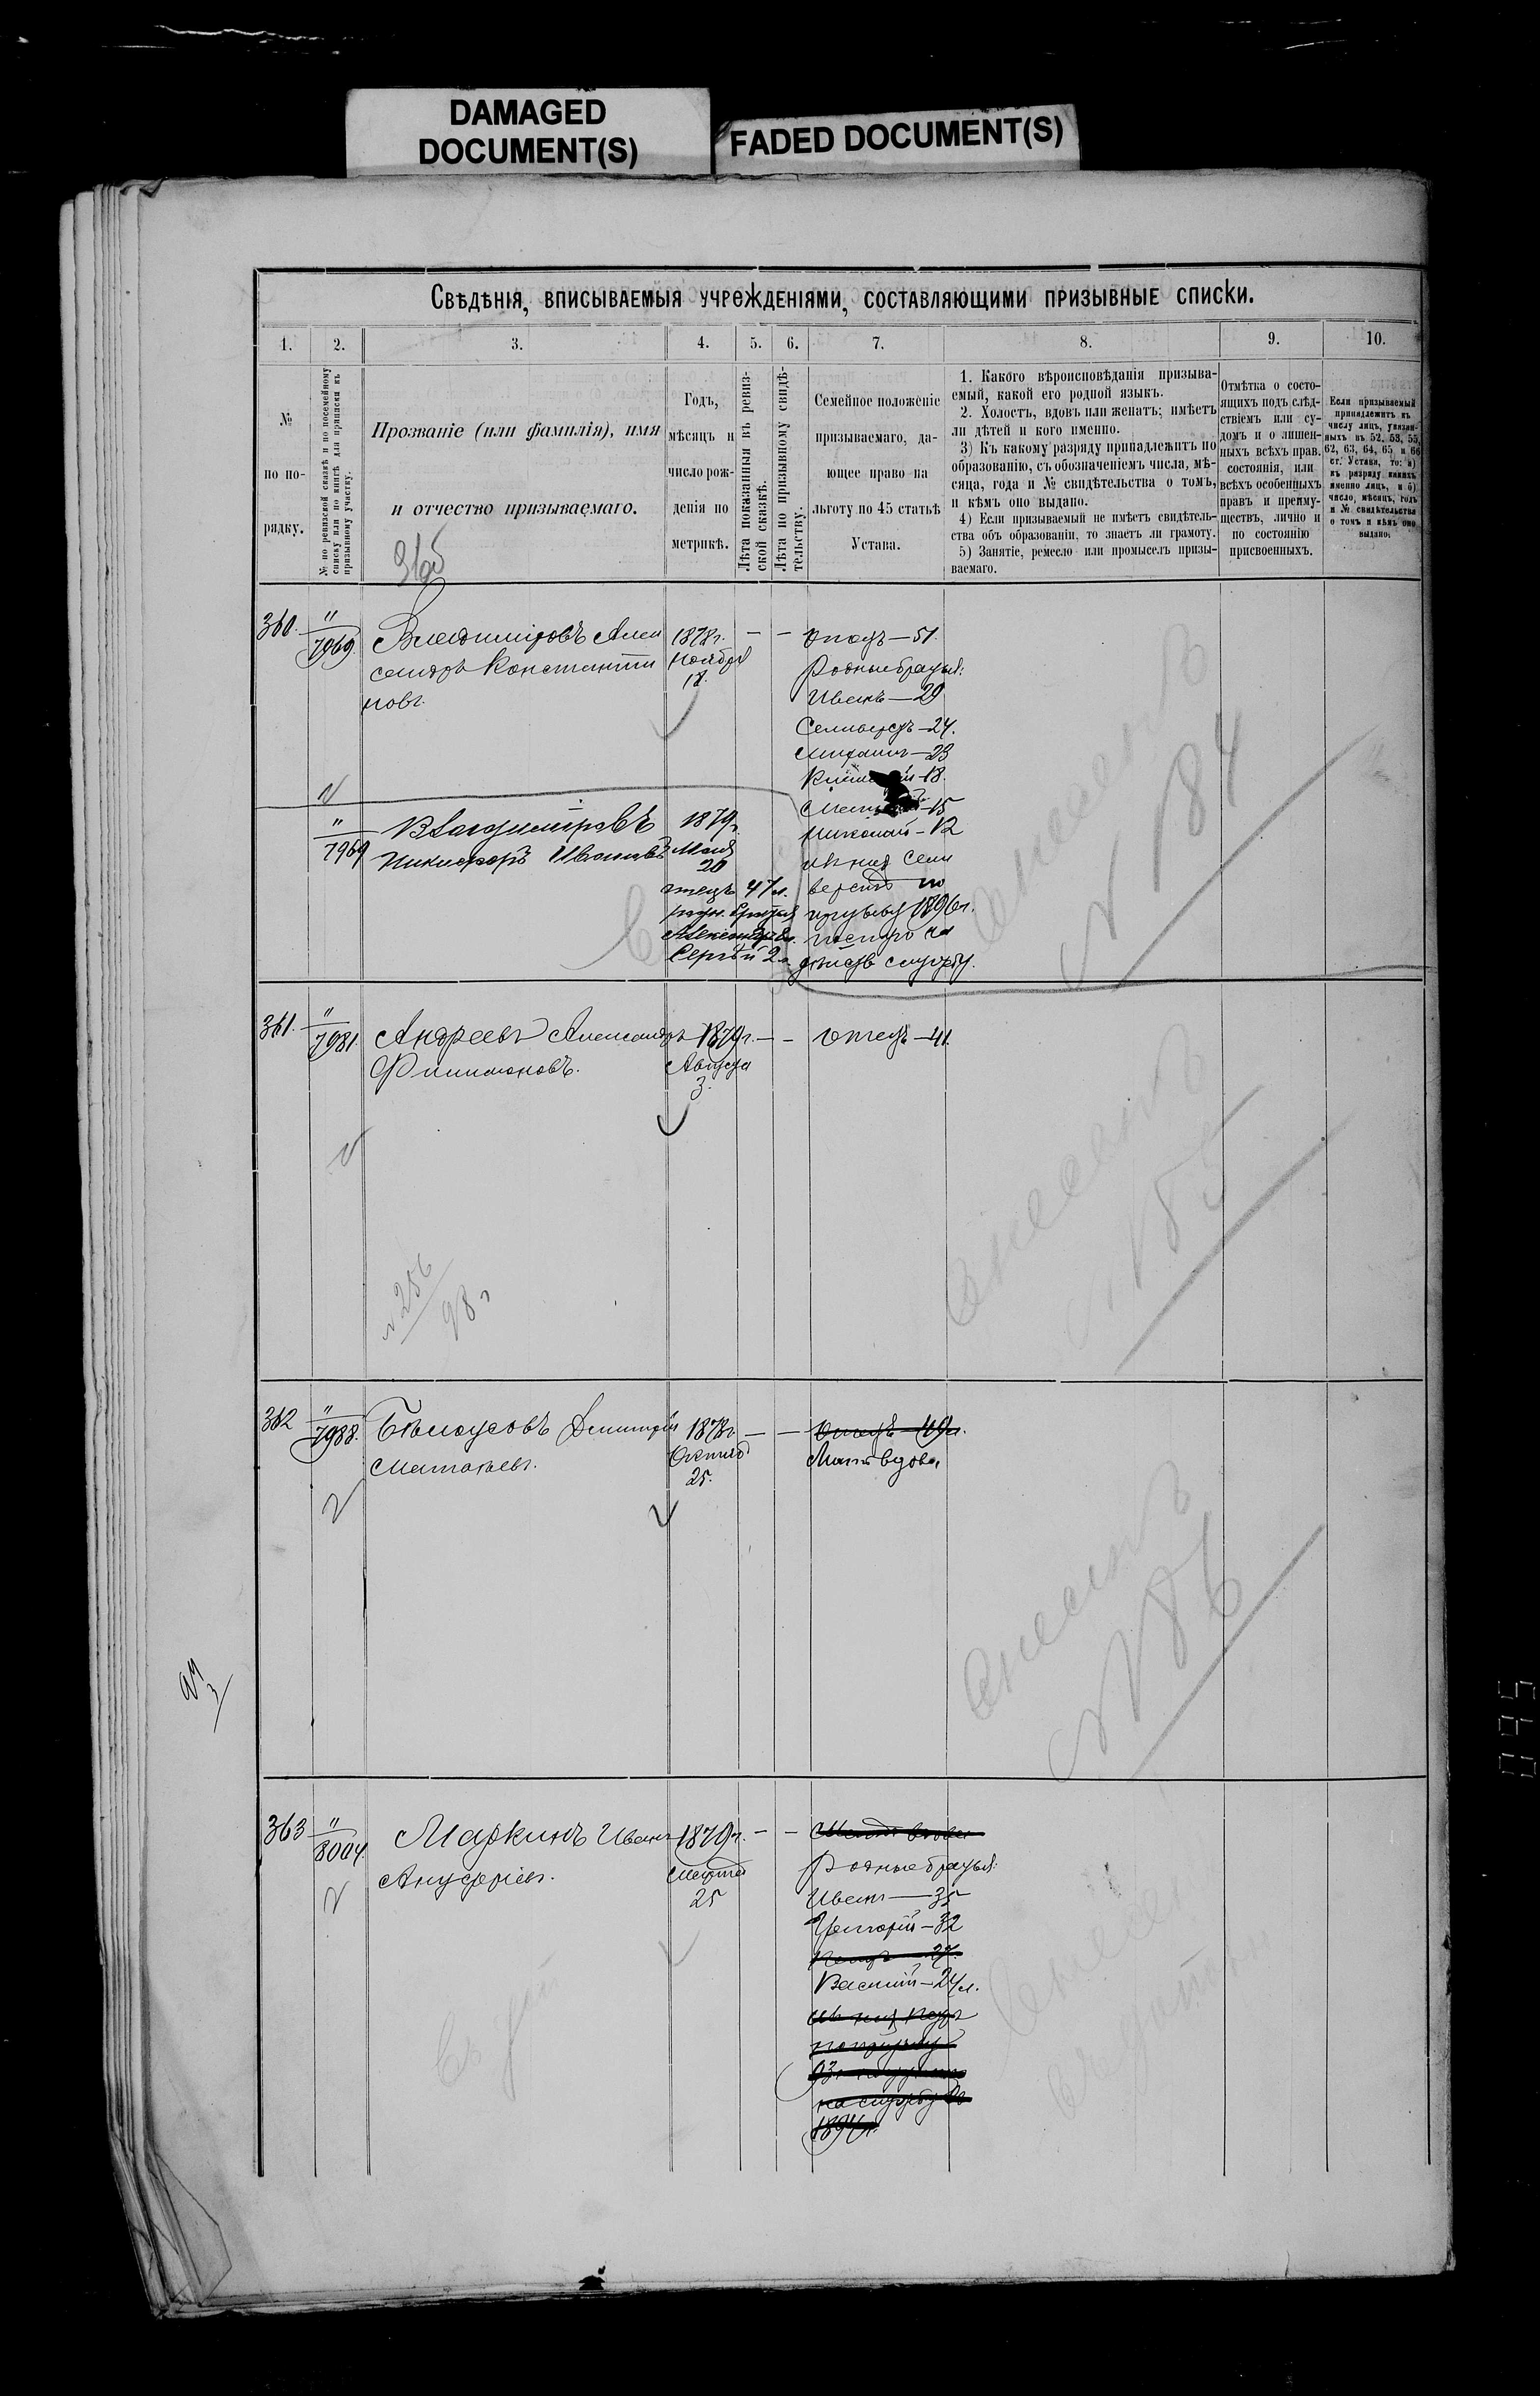 DAMAGED
DOCUMENT(S)
FADED DOCUMENT(S)
Свѣдѣнія, вписываемыя учрежденіями, составляющими призывные списки.
1. 2. 3. 4. 5. 6. 7. 8. 9. 10.
№
по по-
рядку.
№ по ревизской сказкѣ и по посемейному
списку или по книгѣ для приписки къ
призывному участку.
Прозваніе (или фамилія), имя
и отчество призываемаго.
Годъ,
мѣсяцъ и
число рож-
денія по
метрикѣ.
Лѣта показанныя въ ревиз-
ской сказкѣ.
Лѣта по призывному свидѣ-
тельству.
Семейное положеніе
призываемаго, да-
ющее право на
льготу по 45 статьѣ
Устава.
1. Какого вѣроисповѣданія призыва-
емый, какой его родной языкъ.
2. Холостъ, вдовъ или женатъ; имѣетъ
ли дѣтей и кого именно.
3) Къ какому разряду принадлежитъ по
образованію, съ обозначеніемъ числа, мѣ-
сяца, года и № свидѣтельства о томъ,
и кѣмъ оно выдано.
4) Если призываемый не имѣетъ свидѣтель-
ства объ образованіи, то знаетъ ли грамоту.
5) Занятіе, ремесло или промыселъ призы-
ваемаго.
Отмѣтка о состо-
ящихъ подъ слѣд-
ствіемъ или су-
домъ и о лишен-
ныхъ всѣхъ прав.
состоянія, или
всѣхъ особенныхъ
правъ и преиму-
ществъ, лично и
по состоянію
присвоенныхъ.
Если призываемый
принадлежитъ къ
числу лицъ, указан-
ныхъ въ 52, 53, 55,
62, 63, 64, 65 и 66
ст. Устава, то: а)
къ разряду какихъ
именно лицъ, и б)
число, мѣсяцъ, годъ
и № свидѣтельства
о томъ и кѣмъ оно
выдано.
360. " 7969. Владиміровъ Алек
сандръ Константи
новъ.
1878 г.
Ноября
18.
— —
Отецъ — 51.
Родные братья:
Иванъ — 29
Селиверстъ — 24.
Михаилъ — 23
18.
15
Николай — 12
изъ нихъ Сели
верстъ по
призыву 1896 г.
на
службу.
" 7969 Владиміровъ
Никифоръ Ивановъ
1879 г.
Мая
20
отецъ 47 л.
родн. братья
Александръ 8 л.
Сергѣй 2 л.
№ 84
361. " 7981. Андреевъ Александръ
Филимоновъ.
1879 г.
Августа
3.
— —
Отецъ — 41.
№ 256
98 г
№ 85
362 " 7988. Бѣлоусовъ Дмитрій
1878 г.
25.
— —
Отецъ — 49 л.
Мать вдова
№ 86
363 " 8004. Маркинъ Иванъ
Ануфріевъ.
1879 г.
Марта
25
— —
Мать вдова
Родные братья:
Иванъ — 35
Григорій — 32
27.
Василій — 24 л.
на службу въ
1894 г.